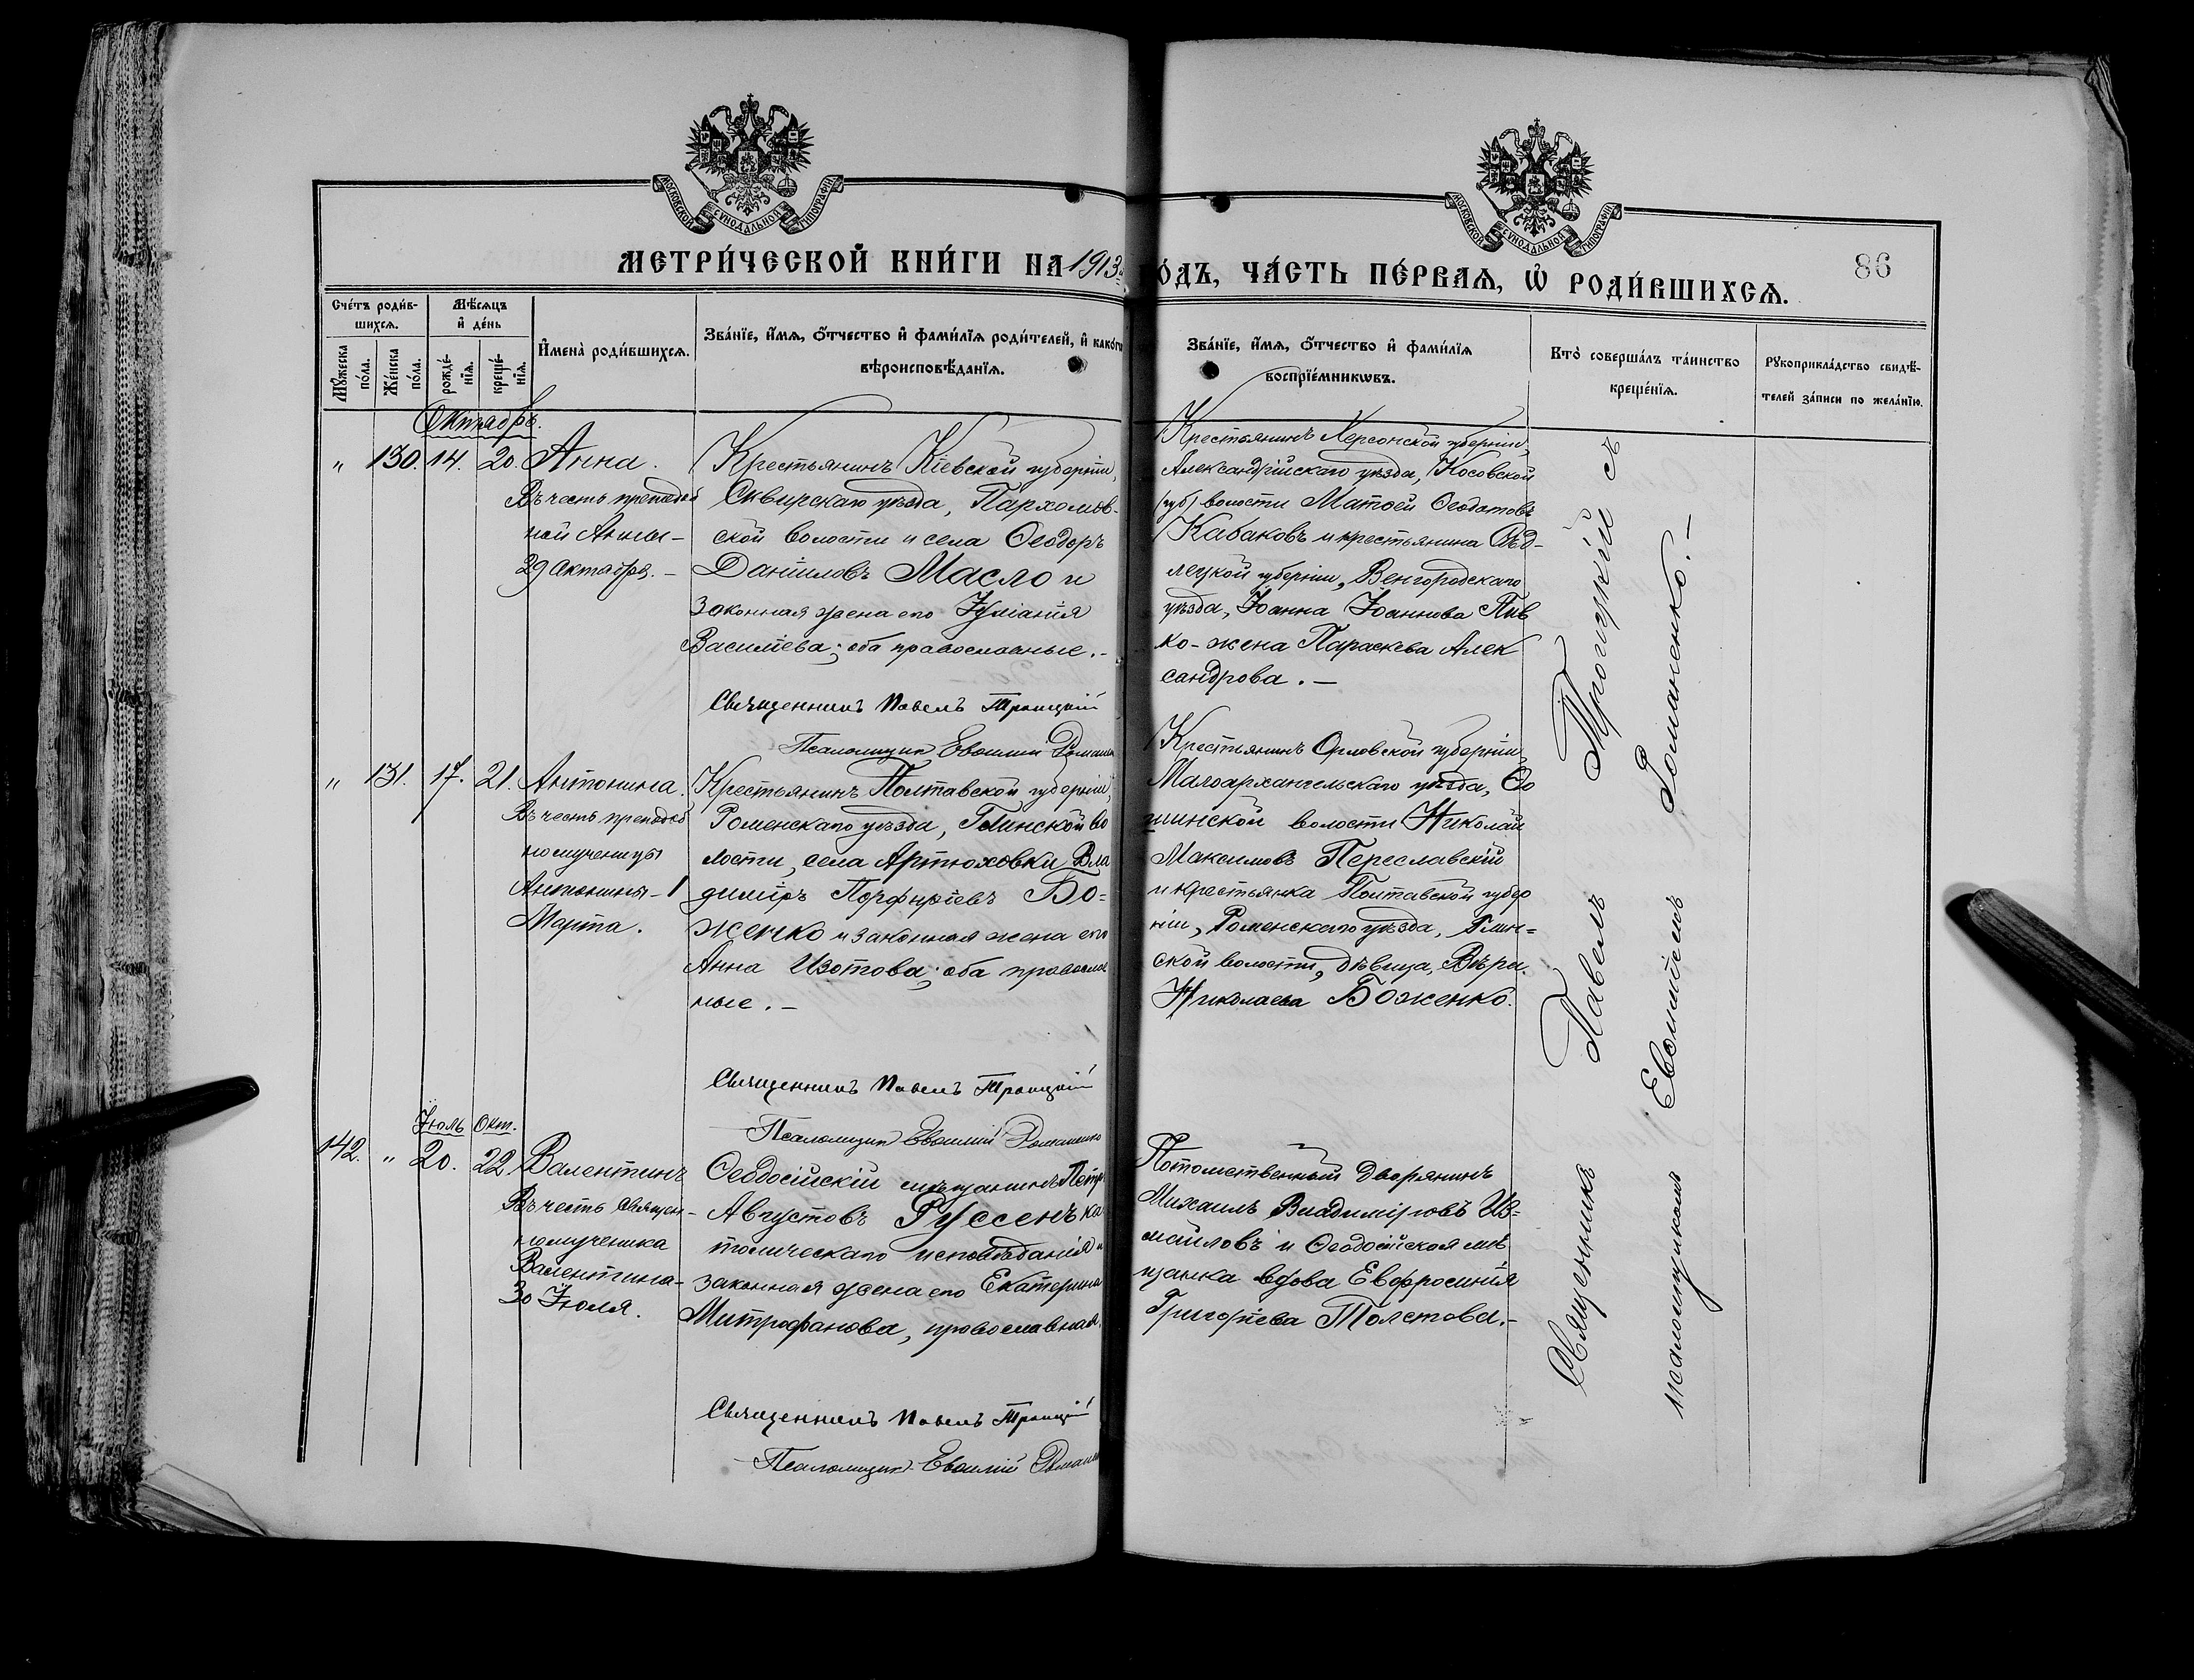 МОСКОВСКОЙ СѴНОДАЛЬНОЙ ТИПОГРАФІИ
МОСКОВСКОЙ СѴНОДАЛЬНОЙ ТИПОГРАФІИ
МЕТРИ́ЧЕСКОЙ КНИ́ГИ НА 1913
О́ДЪ, ЧА́СТЬ ПЕ́РВАЯ, Ѡ РОДИ́ВШИХСЯ.
86
Сче́тъ роди́в-
шихся.
Мѣ́сяцъ
и де́нь
Му́жеска
по́ла.
Же́нска
по́ла.
рожде́-
нїя.
креще́-
нїя.
Имена̀ роди́вшихся.
Зва́нїе, и́мя, о́тчество и фами́лїя роди́телей, и како́гѡ
вѣроисповѣ́данїя.
Зва́нїе, и́мя, о́тчество и фами́лїя
воспрїе́мникѡвъ.
Кто̀ соверша́лъ та́инство
креще́нїя.
Рꙋкоприкла́дство свидѣ́-
телей за́писи по жела́нїю.
Октябрь.
" 130. 14. 20. Анна.
Въ честь преподоб
ной Анны-
29 Октября. -
Крестьянинъ Кіевской губерніи,
Сквирскаго уѣзда, Пархомов-
ской волости и села Ѳеодоръ
Даніиловъ Масло и
законная жена его Іуліанія
Василіева; оба православные. -
Священникъ Павелъ Троицкій
Псаломщик Евѳимій Романен
Крестьянинъ Херсонской губерніи,
Александрійскаго уѣзда, Косовской
(губ) волости Матѳей Ѳеодотовъ
Кабаковъ и крестьянина Сѣд-
лецкой губерніи, Венгородскаго
уѣзда, Іоанна Іоаннова Пив
ко - жена Параскева Алек
сандрова. -
" 131. 17. 21. Антонина.
Въ честь преподоб
номученицы
Антонины - 1
Марта.
Крестьянинъ Полтавской губерніи,
Роменскаго уѣзда, Глинской во
лости, села Артюховки Вла
диміръ Порфиріевъ Бо=
женко и законная жена его
Анна Изотова; оба православ
ные. -
Священникъ Павелъ Троицкій
Псаломщик Евѳимій Романенко
Крестьянинъ Орловской губерніи
Малоархангельскаго уѣзда,
волости Николай
Максимовъ Переславскій
и крестьянка Полтавской губер
ніи, Роменскаго уѣзда, Глин=
ской волости, дѣвица, Вѣра
Николаева Боженко.
Іюль Окт.
142. " 20. 22. Валентинъ
Въ честь Священ-
номученика
Валентина-
30 Іюля.
Ѳеодосійскій мѣщанинъ Петръ
Августовъ Руссенъ ка
толическаго исповѣданія и
законная жена его Екатерина
Митрофанова, православная.
Священникъ Павелъ Троицкій
Псаломщик Евѳимій Романен
Потомственный Дворянинъ
Михаилъ Владиміровъ Из=
маиловъ и Ѳеодосійская мѣ
щанка вдова Евфросинія
Григоріева Толстова. -
Священникъ Павелъ Троицкій съ
псаломщикомъ Евѳиміемъ Романенко. -